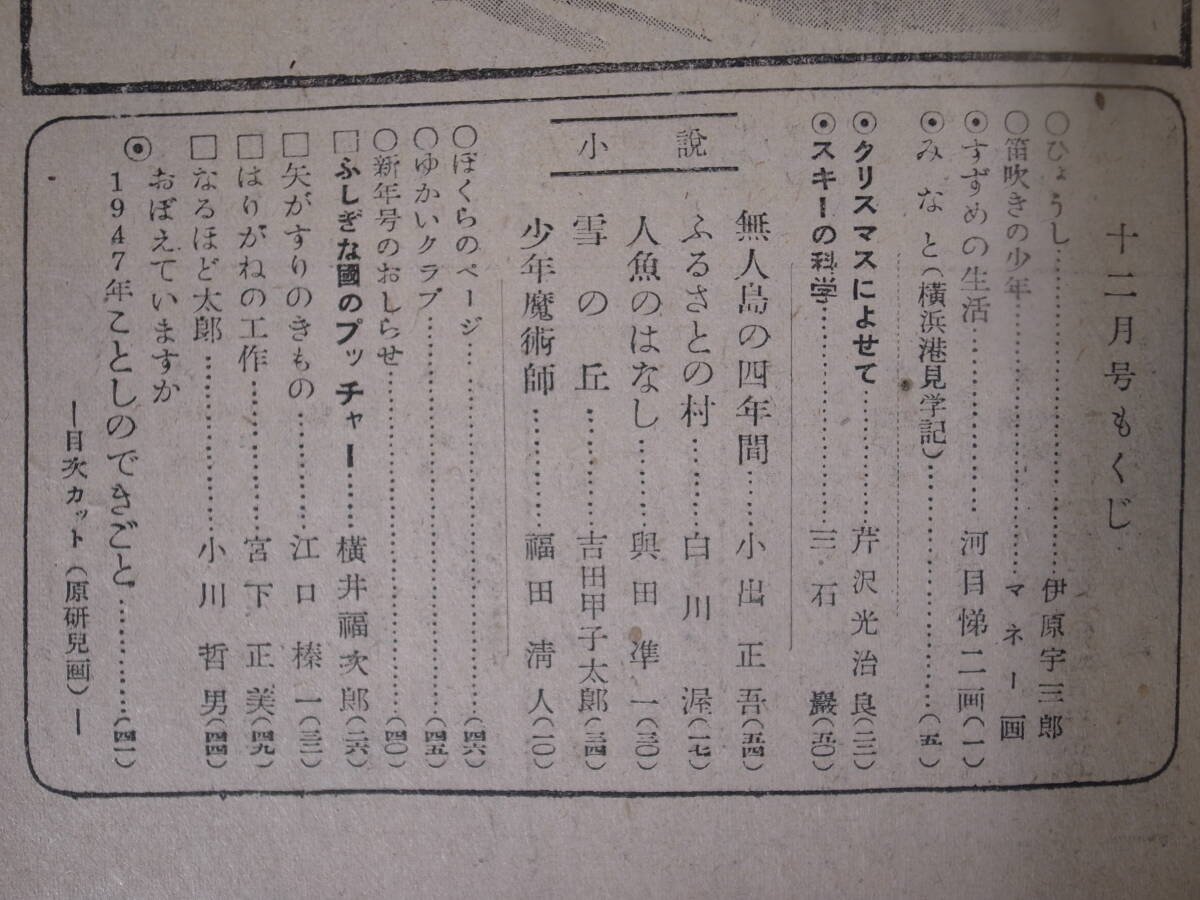 十二月号もくじ
○ひょうし……………………伊原宇三郎
○笛吹きの少年……………………マネー画
⦿すずめの生活……………………河目悌二画(一)
⦿みなと(横浜港見学記)……………………(五)
⦿クリスマスによせて…………芹沢光治良(二二)
⦿スキーの科学……………………三石巖(五〇)
小説
無人島の四年間……小出正吾(五四)
ふるさとの村………白川渥(一七)
人魚のはなし………與田準一(三〇)
雪の丘…………吉田甲子太郎(三四)
少年魔術師…………福田清人(一〇)
○ぼくらのページ……………………(四六)
○ゆかいクラブ……………………(四五)
○新年号のおしらせ……………………(四〇)
□ふしぎな國のプッチャー……横井福次郎(二六)
□矢がすりのきもの…………江口榛一(三二)
□はりがねの工作……………宮下正美(四九)
□なるほど太郎………………小川哲男(四四)
おぼえていますか
⦿1947年ことしのできごと…………(四一)
―目次カット(原研兒画)―